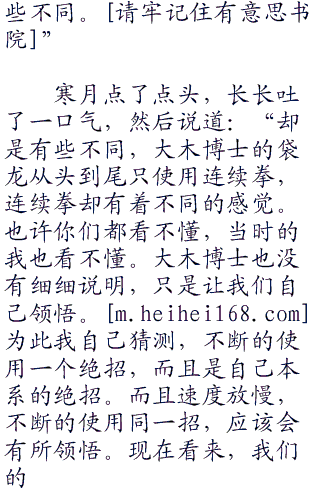 些不同。[请牢记住有意思书
院]”
寒月点了点头，长长吐
了一口气，然后说道：“却
是有些不同，大木博士的袋
龙从头到尾只使用连续拳，
连续拳却有着不同的感觉。
也许你们都看不懂，当时的
我也看不懂。大木博士也没
有细细说明，只是让我们自
己领悟。[m.heihei168.com]
为此我自己猜测，不断的使
用一个绝招，而且是自己本
系的绝招。而且速度放慢，
不断的使用同一招，应该会
有所领悟。现在看来，我们
的